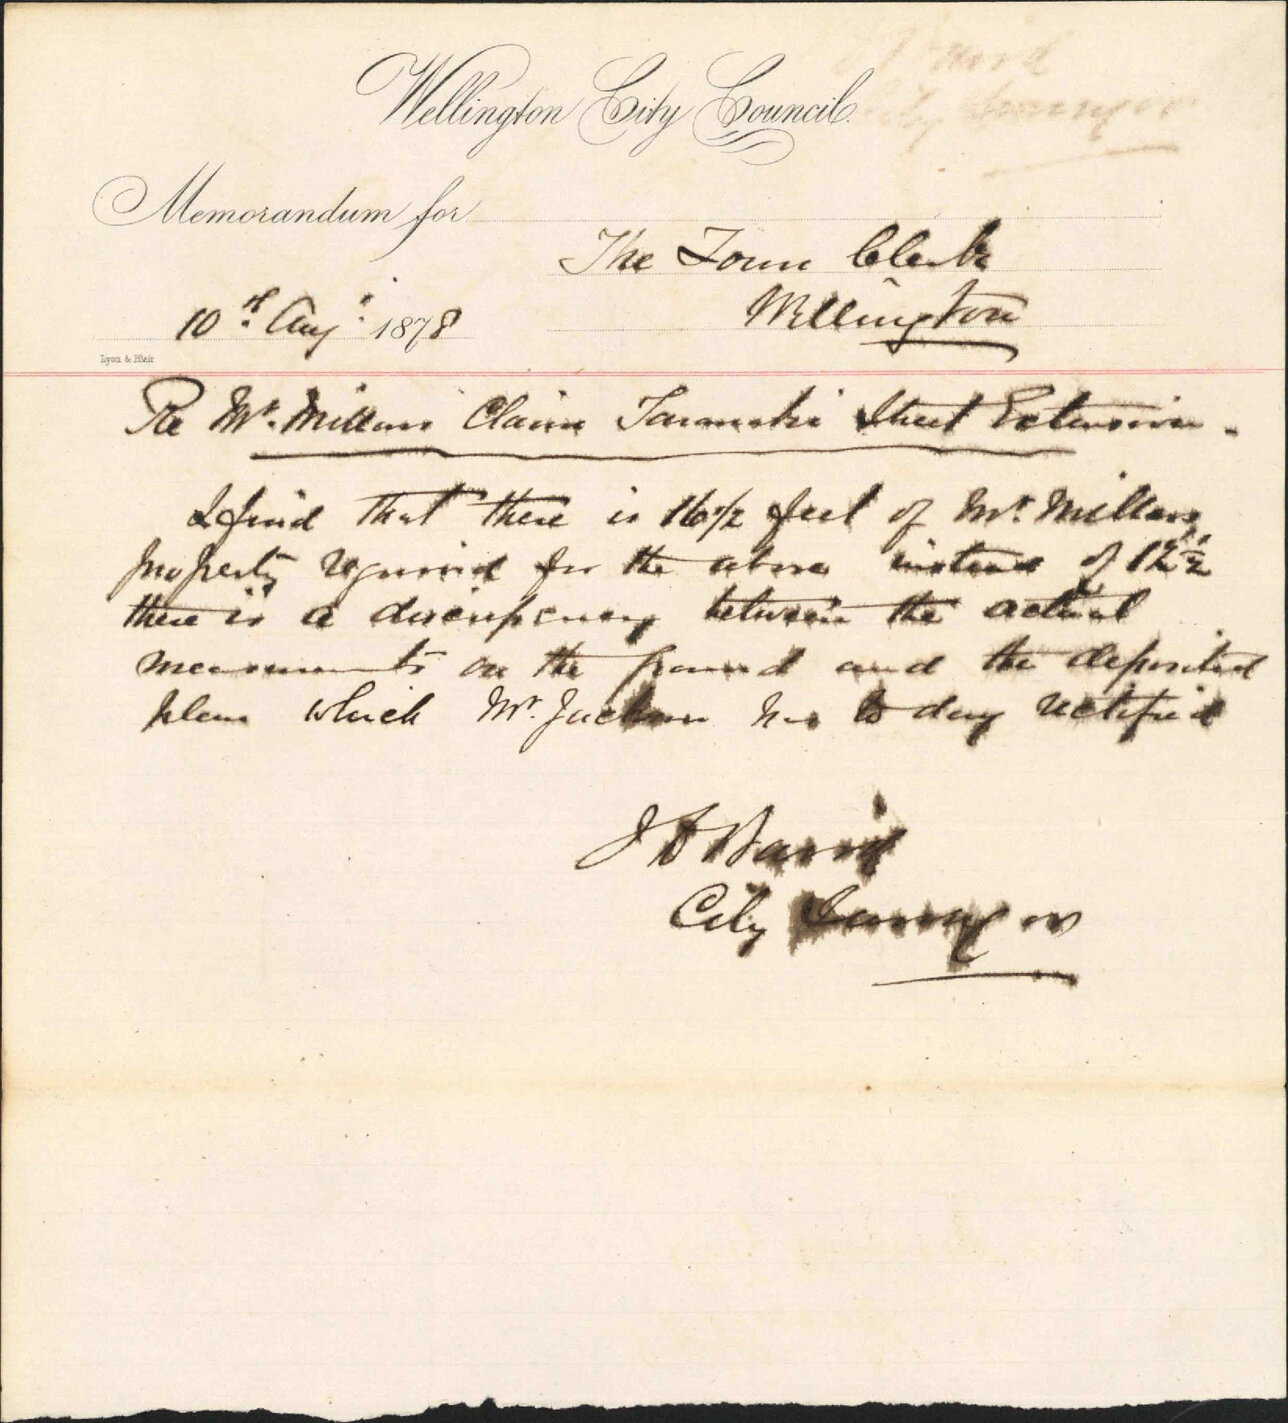 Wellington City Council.
Memorandum for
The Town Clerk
Wellington
10th Augt. 1878
Lyon & Blair
Re Mr. Millars Claim Taranaki Street Extension.
I find that there is 16 1/2 feet of Mr. Millars
property required for the above instead of 12 1/2
there is a discrepency between the actual
measurements on the ground and the deposited
plan which Mr. Jackson has to day rectified
J D Baird
City Surveyor